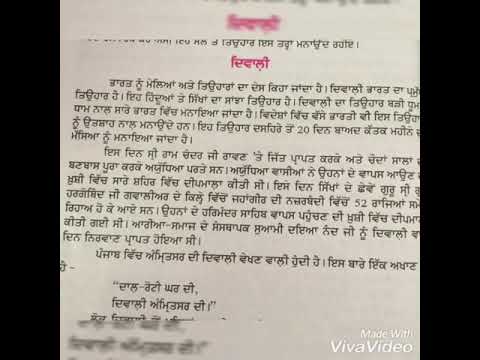 ਦਿਵਾਲੀ
ਦਿਵਾਲੀ
ਭਾਰਤ ਨੂੰ ਮੇਲਿਆਂ ਅਤੇ ਤਿਉਹਾਰਾਂ ਦਾ ਦੇਸ ਕਿਹਾ ਜਾਂਦਾ ਹੈ। ਦਿਵਾਲੀ ਭਾਰਤ ਦਾ
ਤਿਉਹਾਰ ਹੈ। ਇਹ ਹਿੰਦੂਆਂ ਤੇ ਸਿੱਖਾਂ ਦਾ ਸਾਂਝਾ ਤਿਉਹਾਰ ਹੈ। ਦਿਵਾਲੀ ਦਾ ਤਿਉਹਾਰ ਬੜੀ ਧੂਮ
ਧਾਮ ਨਾਲ ਸਾਰੇ ਭਾਰਤ ਵਿੱਚ ਮਨਾਇਆ ਜਾਂਦਾ ਹੈ। ਵਿਦੇਸ਼ਾਂ ਵਿੱਚ ਵੱਸੇ ਭਾਰਤੀ ਵੀ ਇਸ ਤਿਉਹਾ
ਨੂੰ ਉਤਸ਼ਾਹ ਨਾਲ ਮਨਾਉਂਦੇ ਹਨ। ਇਹ ਤਿਉਹਾਰ ਦਸਹਿਰੇ ਤੋਂ 20 ਦਿਨ ਬਾਅਦ ਕੱਤਕ ਮਹੀਨੇ ਦ
ਮੱਸਿਆ ਨੂੰ ਮਨਾਇਆ ਜਾਂਦਾ ਹੈ।
ਇਸ ਦਿਨ ਸ੍ਰੀ ਰਾਮ ਚੰਦਰ ਜੀ ਰਾਵਣ 'ਤੇ ਜਿੱਤ ਪ੍ਰਾਪਤ ਕਰਕੇ ਅਤੇ ਚੌਦਾਂ ਸਾਲਾਂ ਦ
ਬਣਬਾਸ ਪੂਰਾ ਕਰਕੇ ਅਯੁੱਧਿਆ ਪਰਤੇ ਸਨ। ਅਯੁੱਧਿਆ ਵਾਸੀਆਂ ਨੇ ਉਹਨਾਂ ਦੇ ਵਾਪਸ ਆਉਣ ਦ
ਖ਼ੁਸ਼ੀ ਵਿੱਚ ਸਾਰੇ ਸ਼ਹਿਰ ਵਿੱਚ ਦੀਪਮਾਲਾ ਕੀਤੀ ਸੀ। ਇਸੇ ਦਿਨ ਸਿੱਖਾਂ ਦੇ ਛੇਵੇਂ ਗੁਰੂ ਸ੍ਰੀ ਗੁ
ਹਰਗੋਬਿੰਦ ਜੀ ਗਵਾਲੀਅਰ ਦੇ ਕਿਲ੍ਹੇ ਵਿੱਚੋਂ ਜਹਾਂਗੀਰ ਦੀ ਨਜ਼ਰਬੰਦੀ ਵਿੱਚੋਂ 52 ਰਾਜਿਆਂ ਸਮੇ
ਰਿਹਾਅ ਹੋ ਕੇ ਆਏ ਸਨ। ਉਹਨਾਂ ਦੇ ਹਰਿਮੰਦਰ ਸਾਹਿਬ ਵਾਪਸ ਪਹੁੰਚਣ ਦੀ ਖ਼ੁਸ਼ੀ ਵਿੱਚ ਦੀਪਮਾ
ਕੀਤੀ ਗਈ ਸੀ। ਆਰੀਆ-ਸਮਾਜ ਦੇ ਸੰਸਥਾਪਕ ਸੁਆਮੀ ਦਇਆ ਨੰਦ ਜੀ ਨੂੰ ਦਿਵਾਲੀ ਵਾ
ਦਿਨ ਨਿਰਵਾਣ ਪ੍ਰਾਪਤ ਹੋਇਆ ਸੀ।
ਪੰਜਾਬ ਵਿੱਚ ਅੰਮ੍ਰਿਤਸਰ ਦੀ ਦਿਵਾਲੀ ਵੇਖਣ ਵਾਲੀ ਹੁੰਦੀ ਹੈ। ਇਸ ਬਾਰੇ ਇੱਕ ਅਖਾਣ
ਹੈ -
"ਦਾਲ-ਰੋਟੀ ਘਰ ਦੀ,
ਦਿਵਾਲੀ ਅੰਮ੍ਰਿਤਸਰ ਦੀ।"
Made With
VivaVideo